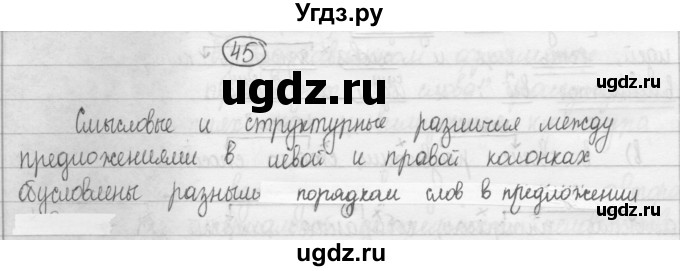 Угдз.ру
45
ugdz.ru
Смысловые и структурные различия между
предложениями в левой и правой колонках
обусловлены разным порядкам слов в предложении
ugdz.ru